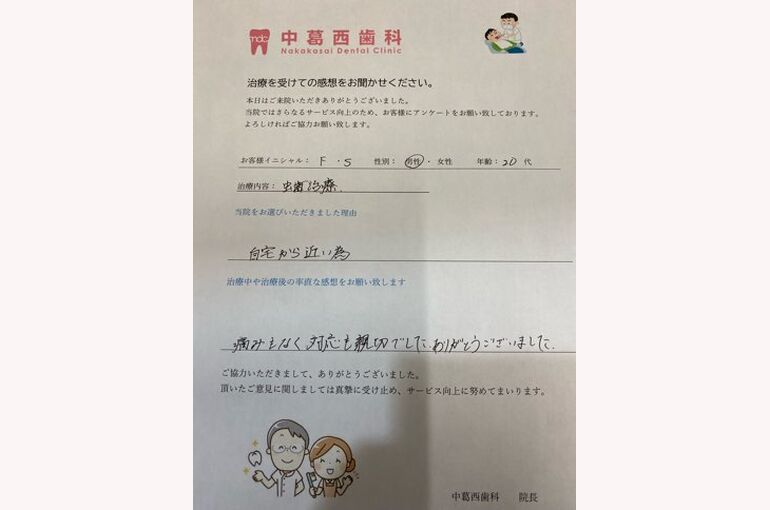 ndc
中葛西歯科
Nakakasai Dental Clinic
治療を受けての感想をお聞かせください。
本日はご来院いただきありがとうございました。
当院ではさらなるサービス向上のため、お客様にアンケートをお願い致しております。
よろしければご協力お願い致します。
お客様イニシャル： F ・S 性別： 男性・ 女性 年齢：20 代
治療内容： 虫歯治療.
当院をお選びいただきました理由
自宅から近い為
治療中や治療後の率直な感想をお願い致します
痛みもなく対応も親切でした.ありがとうございました.
ご協力いただきまして、ありがとうございました。
頂いたご意見に関しましては真摯に受け止め、サービス向上に努めてまいります。
中葛西歯科 院長